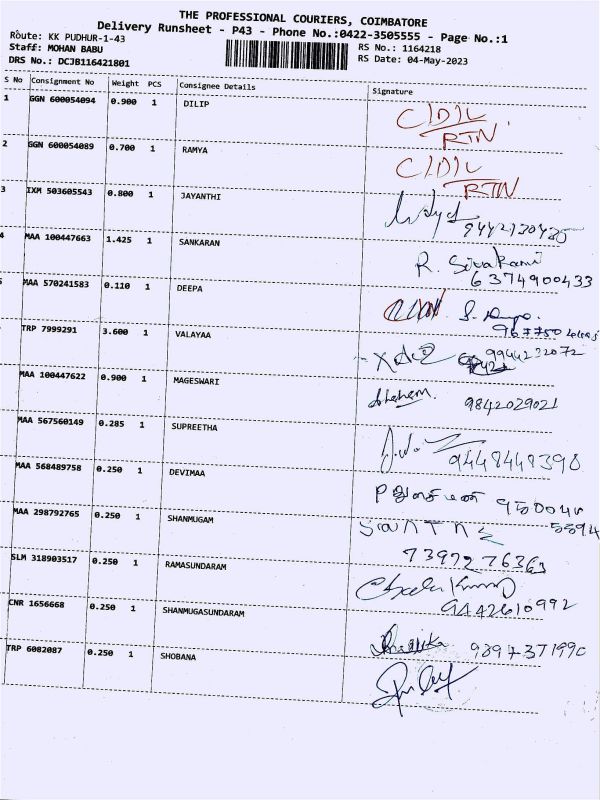 THE PROFESSIONAL COURIERS, COIMBATORE
Delivery Runsheet - P43 - Phone No.:0422-3505555 - Page No.:1
Route: KK PUDHUR-1-43
RS No.: 1164218
Staff: MOHAN BABU
RS Date: 04-May-2023
DRS No.: DCJB116421801
S No Consignment No Weight PCS Consignee Details Signature
1 GGN 600054094 0.900 1 DILIP
RTN
2 GGN 600054089 0.700 1 RAMYA
RTN
3 IXM 503605543 0.800 1 JAYANTHI
4 MAA 100447663 1.425 1 SANKARAN R. Sivakami
6374900433
5 MAA 570241583 0.110 1 DEEPA
TRP 7999291 3.600 1 VALAYAA 9944232072
MAA 100447622 0.900 1 MAGESWARI 9842029021
MAA 567560149 0.285 1 SUPREETHA 9448448390
MAA 568489758 0.250 1 DEVIMAA
MAA 298792765 0.250 1 SHANMUGAM
7397276363
SLM 318903517 0.250 1 RAMASUNDARAM
9442610992
CNR 1656668 0.250 1 SHANMUGASUNDARAM
TRP 6082087 0.250 1 SHOBANA